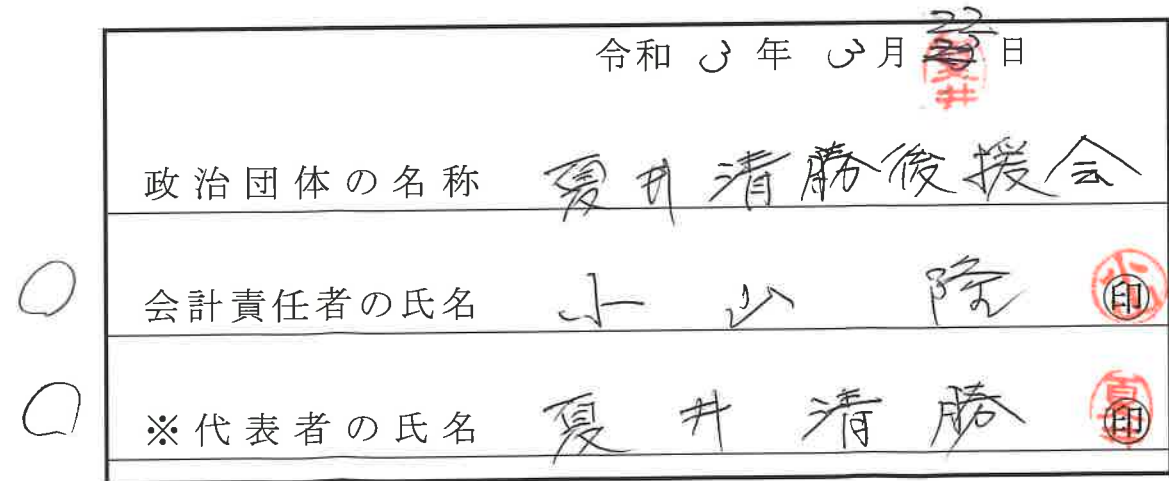 令和 3 年 3 月 22 日
政治団体の名称 夏井清勝後援会
会計責任者の氏名 小山 隆 印
※代表者の氏名 夏井清勝 印